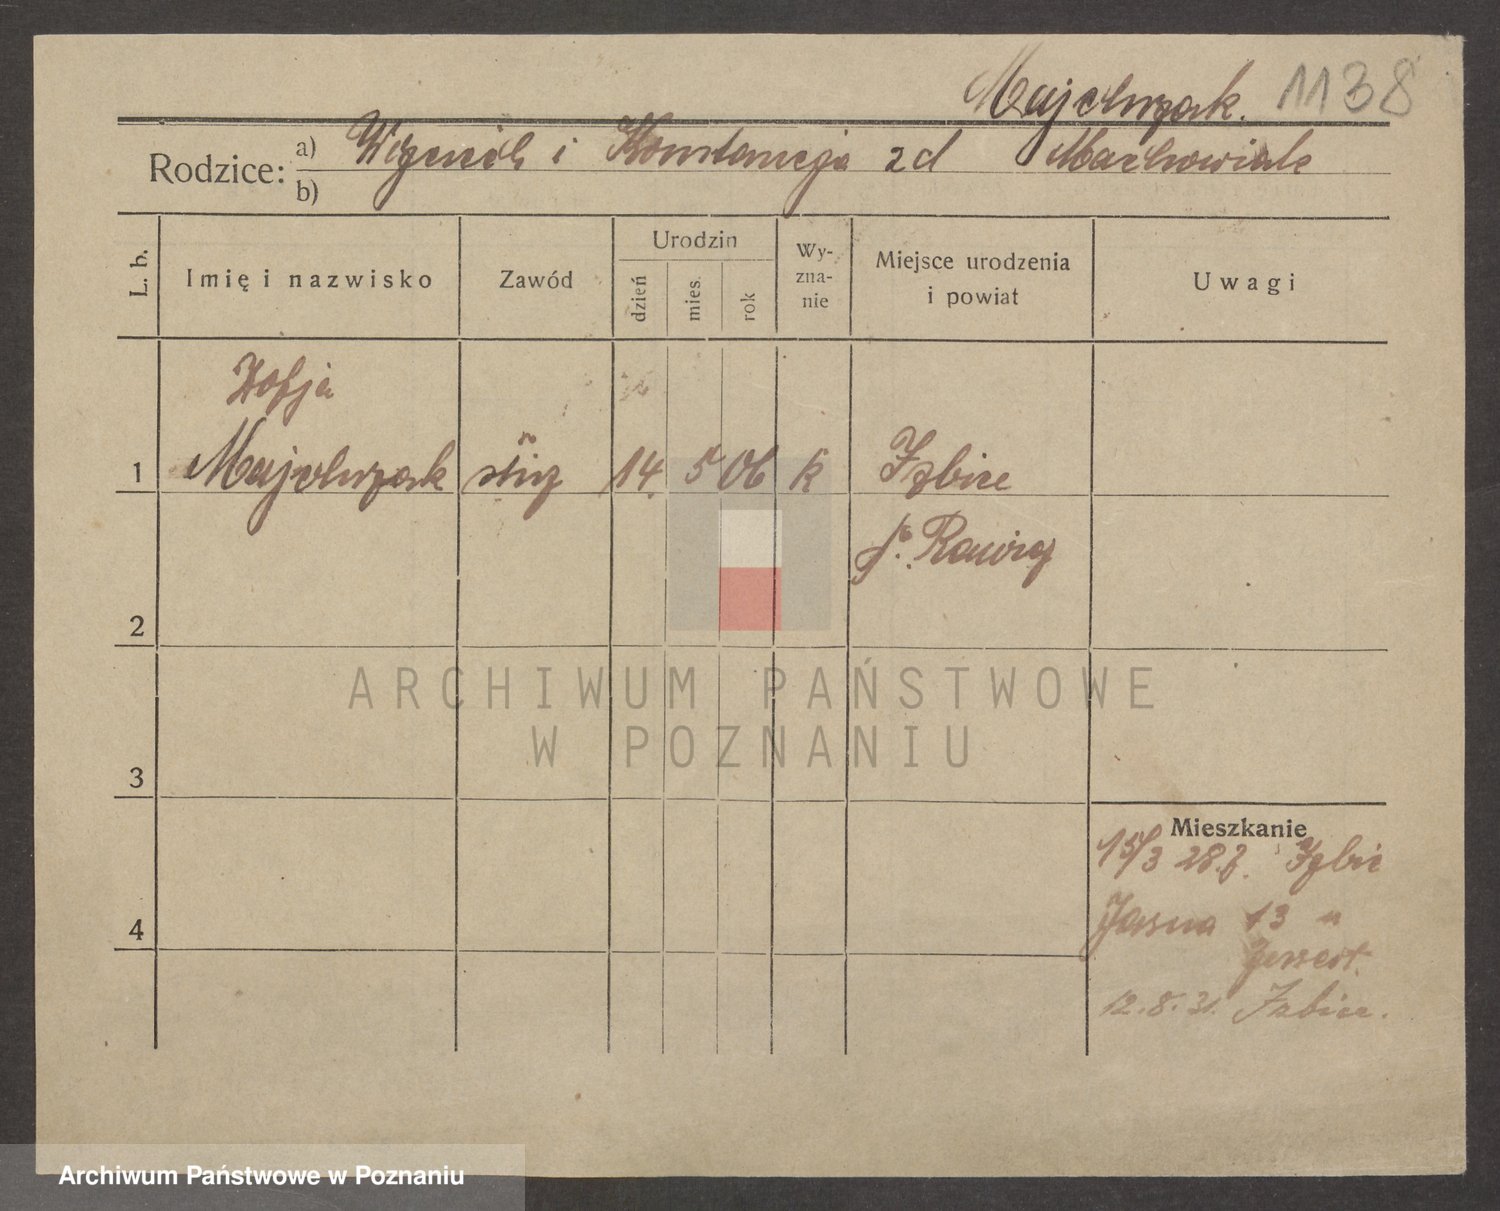 Majchrzak. 1138
Rodzice: a) Wizenich i Konstancja zd Machowiak
b)
L. b. Imię i nazwisko Zawód Urodzin dzień mies. rok Wy-zna-nie Miejsce urodzenia i powiat Uwagi
Zofja
1 Majchrzak służ 14. 5 06 k Izbice
p. Rawicz
2
ARCHIWUM PAŃSTWOWE
W POZNANIU
3
Mieszkanie
15/3 28. z. Izbic
4 Jasna 13 u
12.8.31. Izbice.
Archiwum Państwowe w Poznaniu